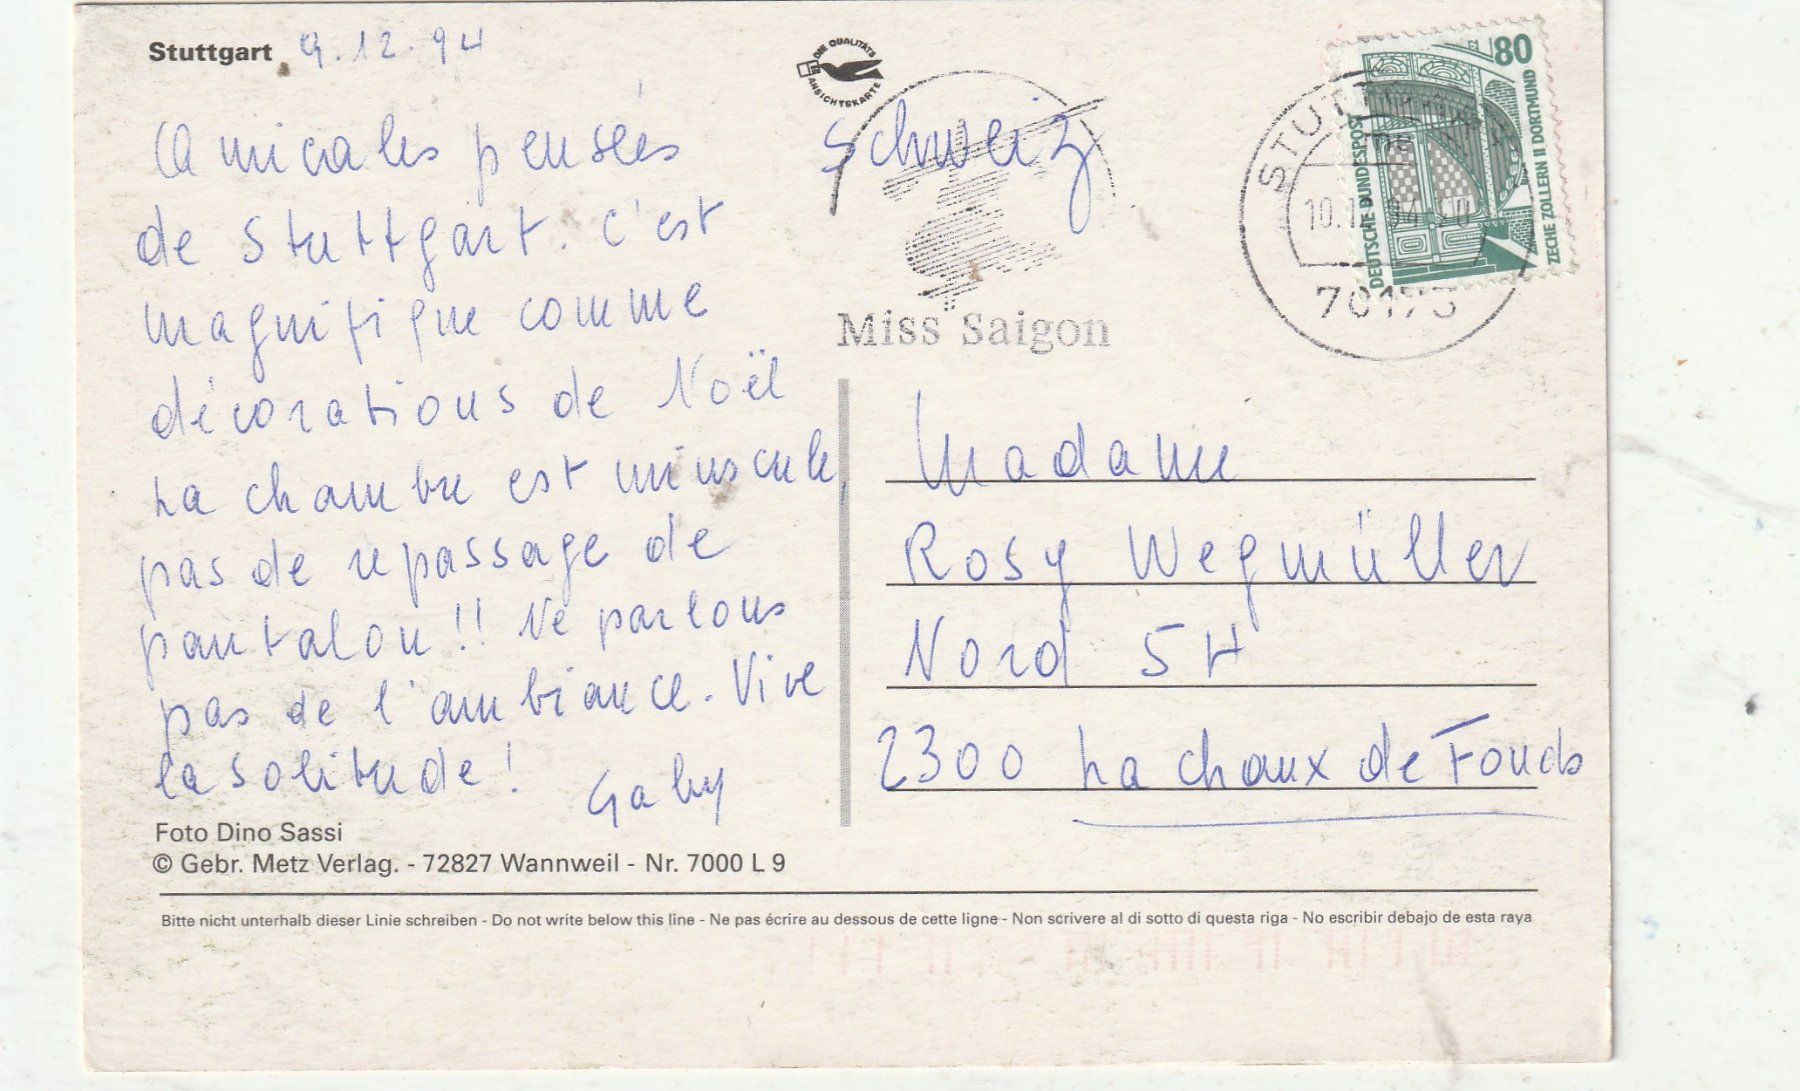 Stuttgart 9.12.94
Amicales pensées
de Stuttgart. C'est
magnifique comme
décorations de Noël
La chambre est minuscule,
pas de repassage de
pantalon!! Ne parlons
pas de l'ambiance. Vive
la solitude!
Gaby
Foto Dino Sassi
© Gebr. Metz Verlag. - 72827 Wannweil - Nr. 7000 L 9
DIE QUALITÄTS
ANSICHTSKARTE
Schweiz
Miss Saigon
80
DEUTSCHE BUNDESPOST
ZECHE ZOLLERN II DORTMUND
Madame
Rosy Wegmüller
Nord 54
2300 La Chaux de Fonds
Bitte nicht unterhalb dieser Linie schreiben - Do not write below this line - Ne pas écrire au dessous de cette ligne - Non scrivere al di sotto di questa riga - No escribir debajo de esta raya